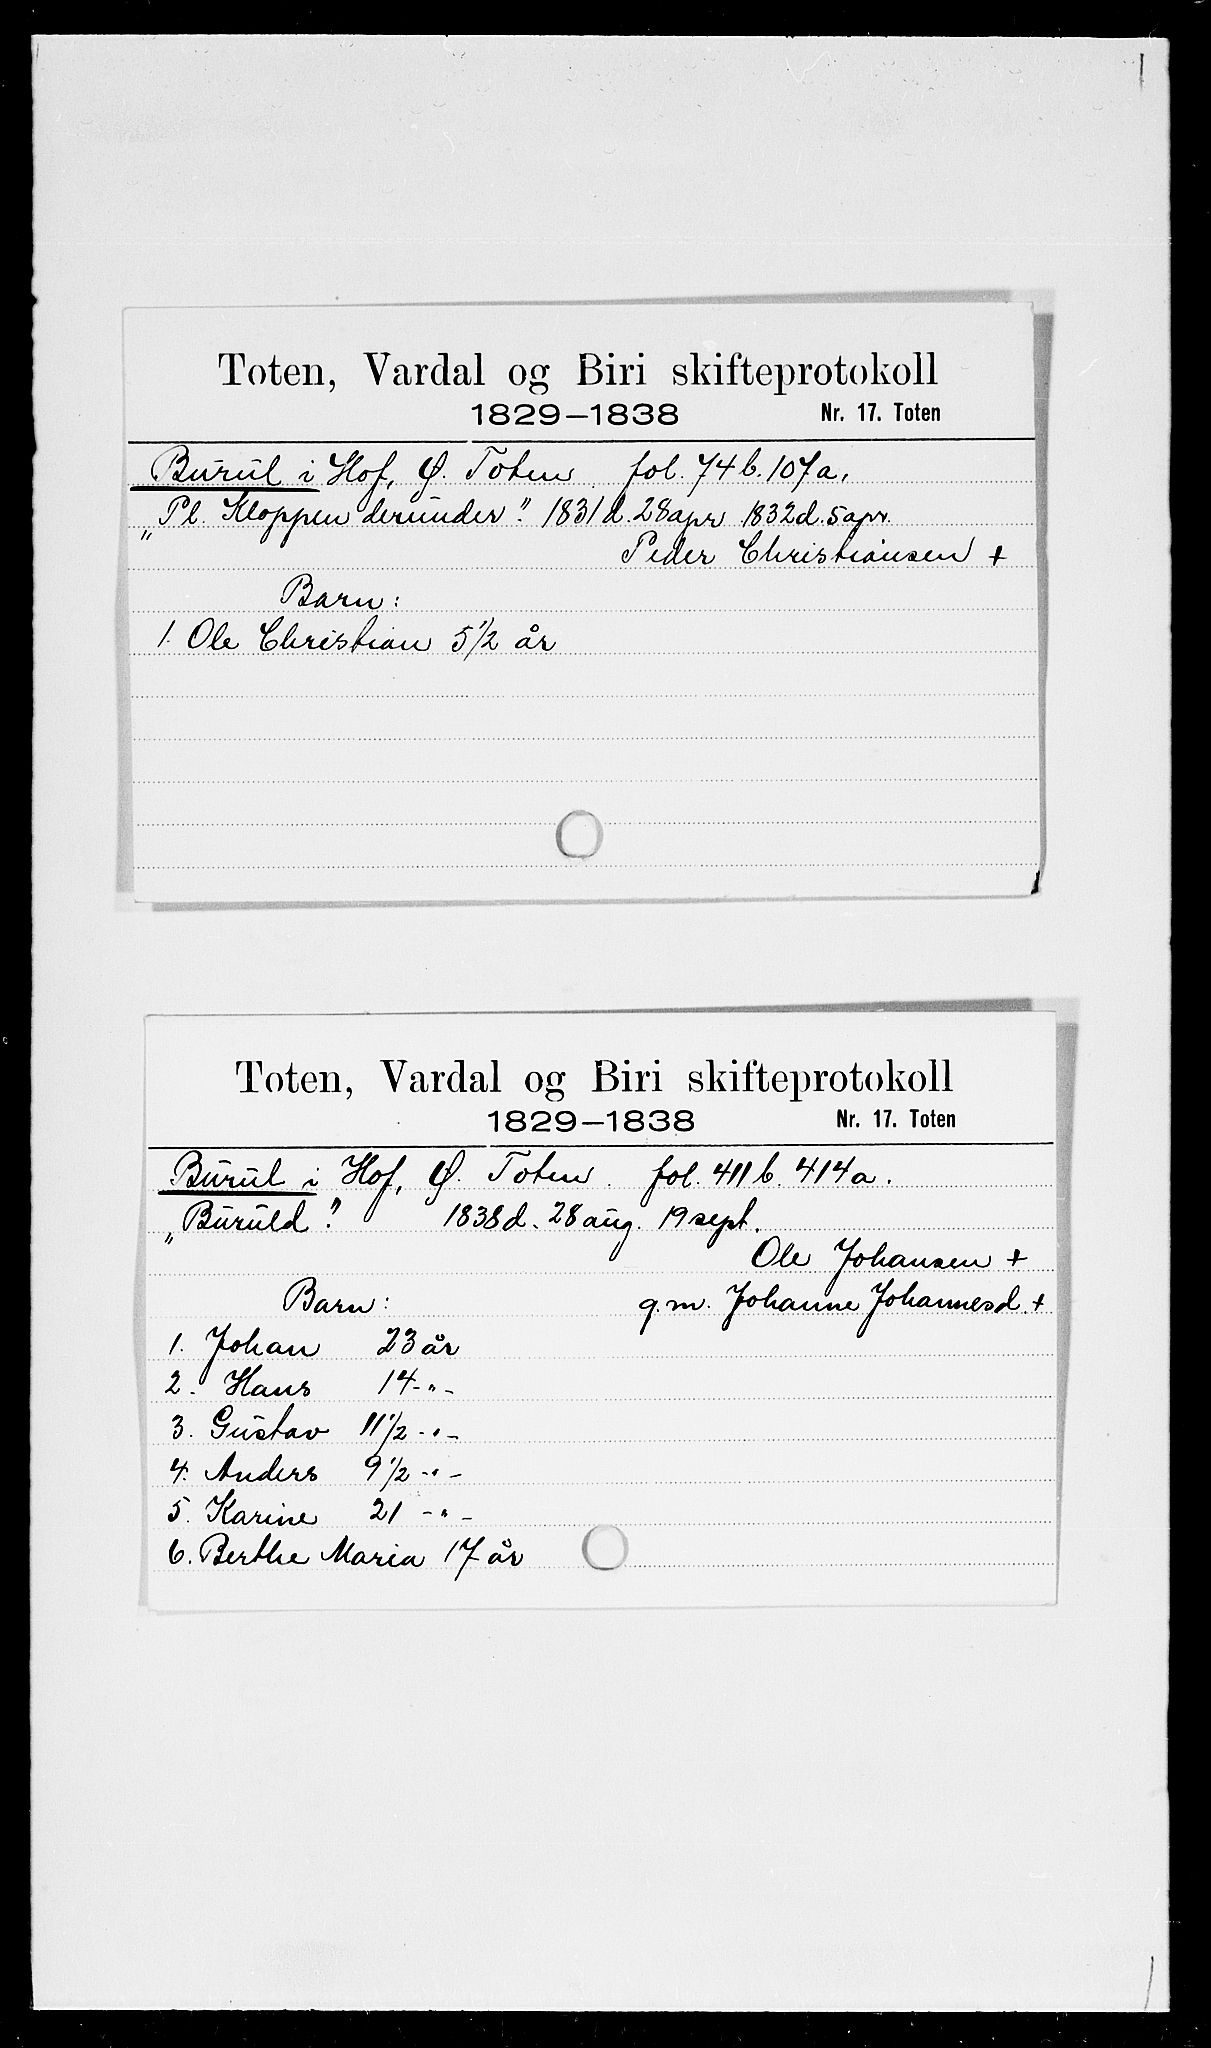 Toten, Vardal og Biri skifteprotokoll
1829–1838 Nr. 17. Toten
Burul i Hof, Ø. Toten. fol. 74b. 107a.
„Pl. Kloppen derunder". 1831 d. 28 apr 1832 d. 5 apr.
Peder Christiansen +
Barn:
1. Ole Christian 5 1/2 år
Toten, Vardal og Biri skifteprotokoll
1829–1838 Nr. 17. Toten
Burul i Hof, Ø. Toten. fol. 411b. 414a.
„Buruld". 1838 d. 28 aug. 19 sept.
Ole Johansen +
Barn: g.m. Johanne Johannesd. +
1. Johan 23 år
2. Hans 14 -"-
3. Gustav 11 1/2 -"-
4. Anders 9 1/2 -"-
5. Karine 21 -"-
6. Berthe Maria 17 år